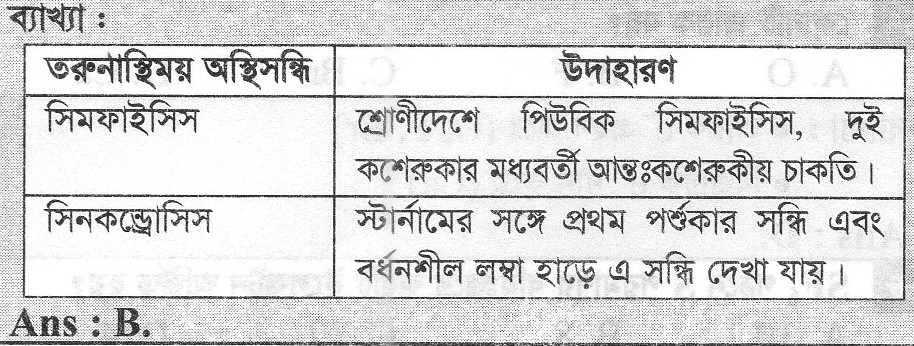 ব্যাখ্যা :
তরুনাস্থিময় অস্থিসন্ধি উদাহারণ
সিমফাইসিস শ্রোণীদেশে পিউবিক সিমফাইসিস, দুই
কশেরুকার মধ্যবর্তী আন্তঃকশেরুকীয় চাকতি।
সিনকন্ড্রোসিস স্টার্নামের সঙ্গে প্রথম পর্শুকার সন্ধি এবং
বর্ধনশীল লম্বা হাড়ে এ সন্ধি দেখা যায়।
Ans : B.